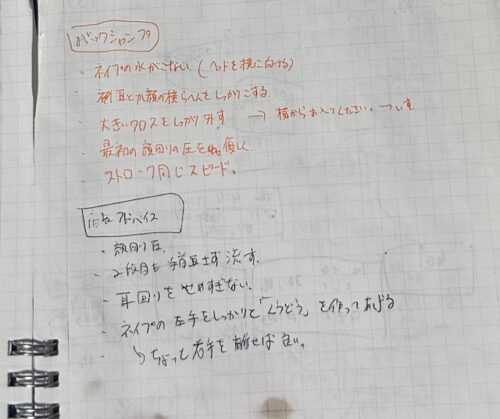 バックシャンプー
・ネイプの水がこない(ヘッドを横に向ける)
・耳と顔の横らへんをしっかりこする
・大きいクロスをしっかり外す → 横からお入りください。ついす
・最初の顔回りの圧を優しく
・ストローク同じスピード。
店長アドバイス
・顔回り圧
・2段目も首長出す 流す。
・耳回りをせめすぎない。
・ネイプの左手をしっかりと「くうどう」を作ってあげる
↳ ちょっと右手を離せば良い。